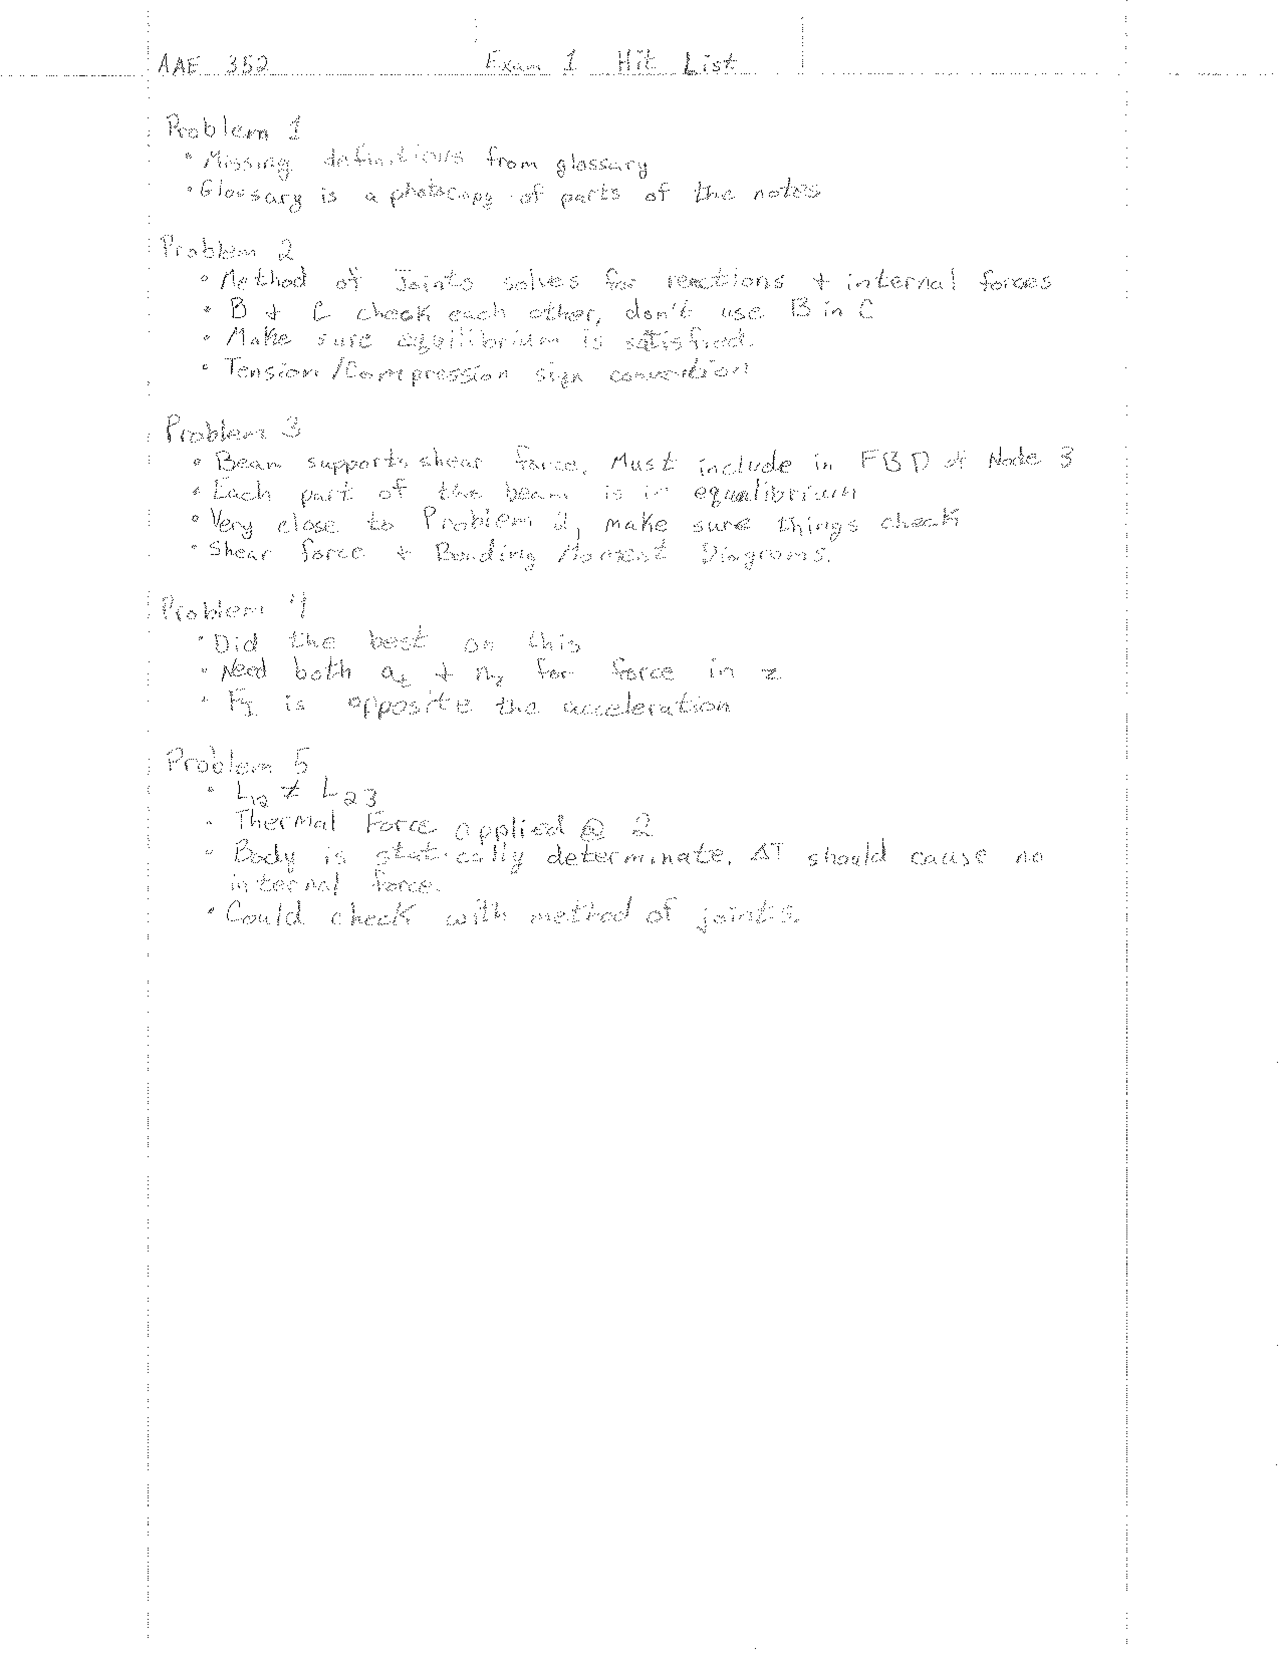 AAE 352 Exam 1 Hit List
Problem 1
• Missing definitions from glossary
• Glossary is a photocopy of parts of the notes
Problem 2
• Method of Joints solves for reactions + internal forces
• B + C check each other, don't use B in C
• Make sure equilibrium is satisfied.
• Tension/Compression sign convention
Problem 3
• Beam supports shear force, Must include in FBD of Node 3
• Each part of the beam is in equalibrium
• Very close to Problem 2, make sure things check
• Shear force + Bending Moment Diagrams.
Problem 4
• Did the best on this
• Need both a_z + n_z for force in z
• F_I is opposite the acceleration
Problem 5
• L_12 ≠ L_23
• Thermal Force applied @ 2
• Body is statically determinate, ΔT should cause no
internal force.
• Could check with method of joints.